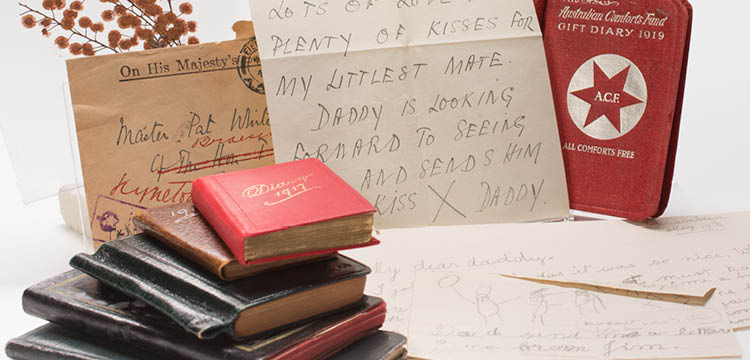 On His Majesty's
Master Pat
LOTS OF LOVE
PLENTY OF KISSES FOR
MY LITTLEST MATE.
DADDY IS LOOKING
FORWARD TO SEEING
AND SENDS HIM
KISS X DADDY.
The
Australian Comforts Fund
GIFT DIARY 1919
A.C.F.
ALL COMFORTS FREE
Diary
1917
My dear daddy.
for it was so nice.
Dad send me a letter